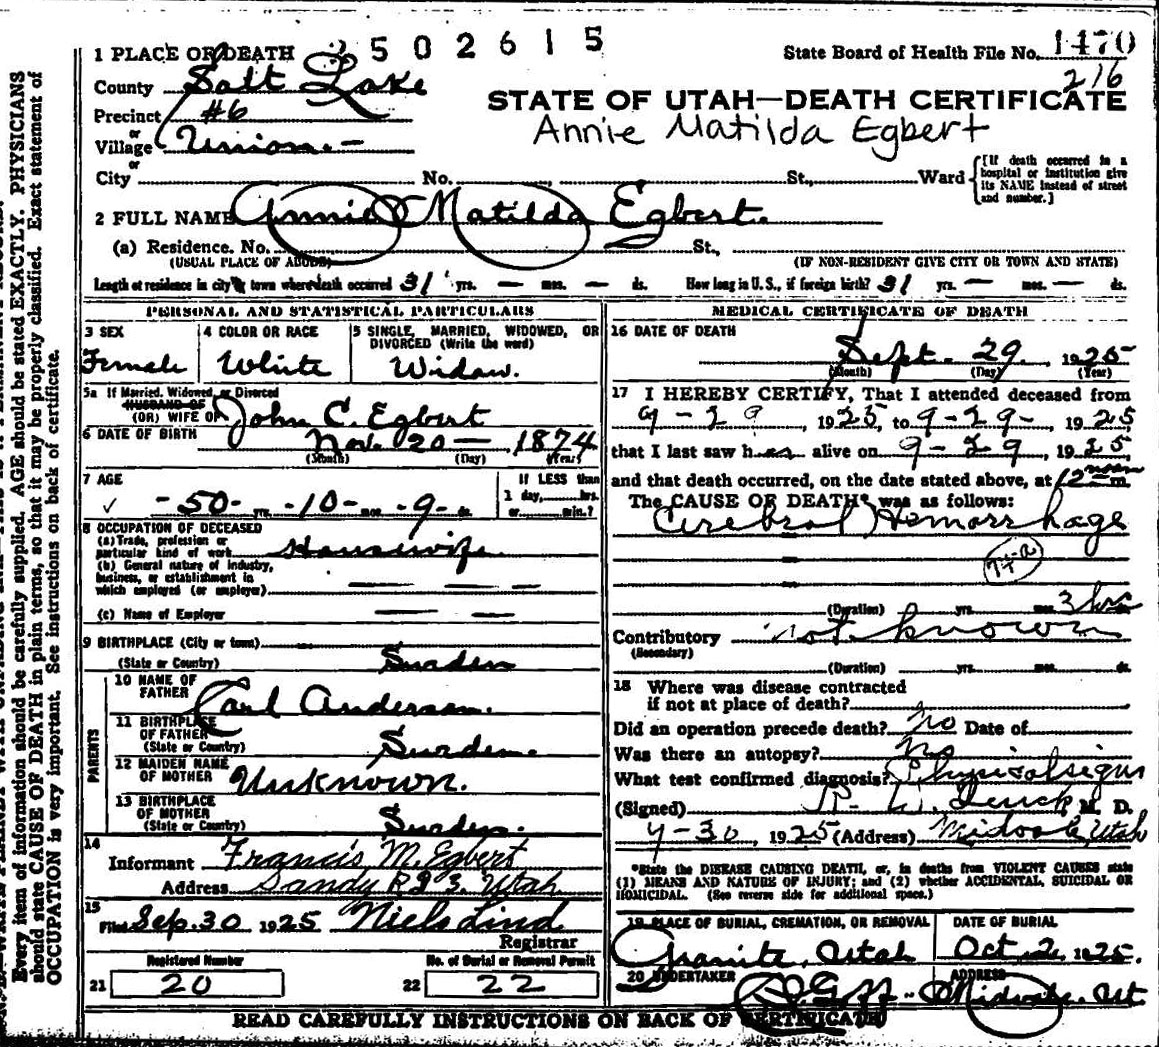 3502615
State Board of Health File No. 1470
216
1 PLACE OF DEATH
County Salt Lake
Precinct #6
or
Village Union.-
or
STATE OF UTAH—DEATH CERTIFICATE
Annie Matilda Egbert
City No. St., Ward [If death occurred in a hospital or institution give its NAME instead of street and number.]
2 FULL NAME Annie Matilda Egbert.
(a) Residence. No. St.,
(USUAL PLACE OF ABODE) (IF NON-RESIDENT GIVE CITY OR TOWN AND STATE)
Length of residence in city or town where death occurred 31 yrs. — mos. — ds. How long in U.S., if foreign birth? 31 yrs. — mos. — ds.
PERSONAL AND STATISTICAL PARTICULARS
3 SEX
Female
4 COLOR OR RACE
White
5 SINGLE, MARRIED, WIDOWED, OR
DIVORCED (Write the word)
Widow.
5a If Married, Widowed, or Divorced
HUSBAND OF
(OR) WIFE OF John C. Egbert
6 DATE OF BIRTH Nov. 20 — 1874
(Month) (Day) (Year)
7 AGE
✓ -50- yrs. -10- mos. -9- ds.
If LESS than
1 day, hrs.
or min.?
8 OCCUPATION OF DECEASED
(a) Trade, profession or
particular kind of work Housewife
(b) General nature of industry,
business, or establishment in
which employed (or employer) — — —
(c) Name of Employer — — —
9 BIRTHPLACE (City or town)
(State or Country) Sweden
PARENTS
10 NAME OF
FATHER Carl Anderson.
11 BIRTHPLACE
OF FATHER
(State or Country) Sweden.
12 MAIDEN NAME
OF MOTHER Unknown.
13 BIRTHPLACE
OF MOTHER
(State or Country) Sweden.
14
Informant Francis M. Egbert
Address Sandy R D 3. Utah
15
Filed Sep. 30 1925 Niels Lind
Registrar
Registered Number
21 20
No. of Burial or Removal Permit
22 22
MEDICAL CERTIFICATE OF DEATH
16 DATE OF DEATH
Sept. 29, 1925
(Month) (Day) (Year)
17 I HEREBY CERTIFY, That I attended deceased from
9-29, 1925, to 9-29-, 1925
that I last saw her alive on 9-29, 1925,
and that death occurred, on the date stated above, at 12 noon m.
The CAUSE OF DEATH* was as follows:
Cerebral Hemorrhage
74-a
(Duration) yrs. mos. 3 hrs
Contributory not known
(Secondary)
(Duration) yrs. mos. ds.
18 Where was disease contracted
if not at place of death?
Did an operation precede death? No Date of
Was there an autopsy? No
What test confirmed diagnosis? Physical signs
(Signed) M. D.
9-30, 1925 (Address) Midvale, Utah
*State the DISEASE CAUSING DEATH, or, in deaths from VIOLENT CAUSES state
(1) MEANS AND NATURE OF INJURY; and (2) whether ACCIDENTAL, SUICIDAL OR
HOMICIDAL. (See reverse side for additional space.)
19 PLACE OF BURIAL, CREMATION, OR REMOVAL
Granite, Utah
DATE OF BURIAL
Oct 2, 1925.
20 UNDERTAKER
Goff-
ADDRESS
Midvale, Ut
READ CAREFULLY INSTRUCTIONS ON BACK OF CERTIFICATE
Every item of information should be carefully supplied. AGE should be stated EXACTLY. PHYSICIANS
should state CAUSE OF DEATH in plain terms, so that it may be properly classified. Exact statement of
OCCUPATION is very important. See instructions on back of certificate.